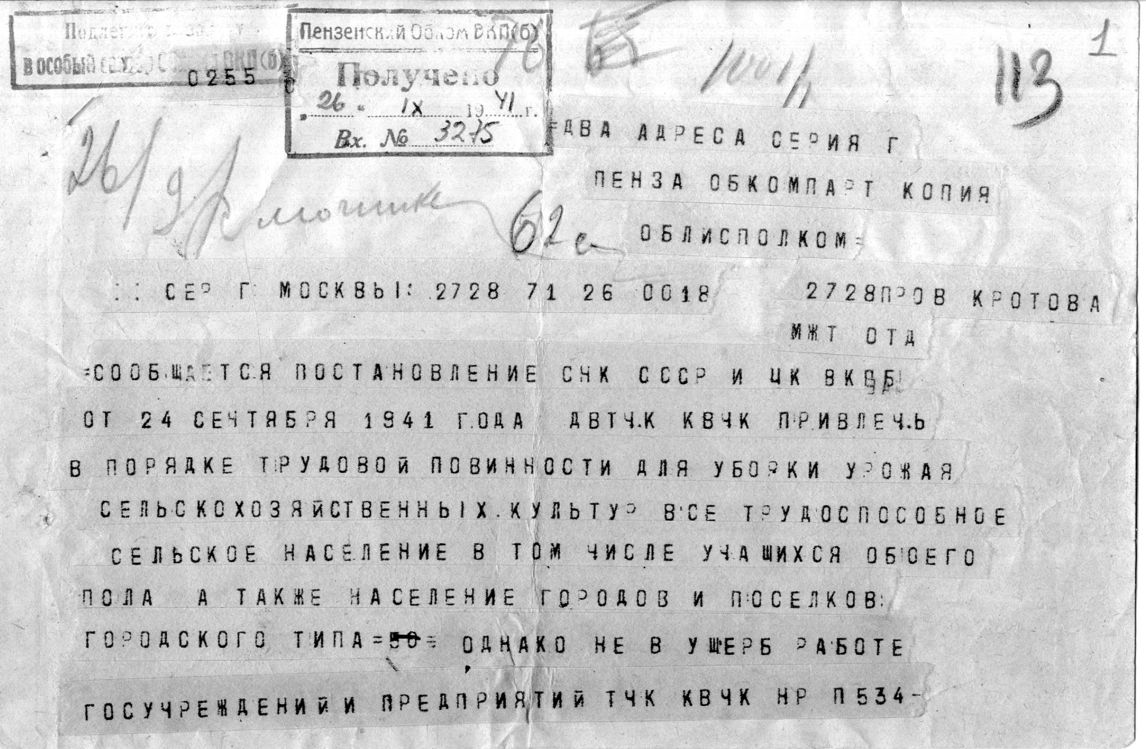 в особый
0255
Пензенский Обком ВКП(б)
Получено
„26“ IX 1941 г.
Вх. № 3275
1
113
26/9
62
=ДВА АДРЕСА СЕРИЯ Г
ПЕНЗА ОБКОМПАРТ КОПИЯ
ОБЛИСПОЛКОМ=
СЕР Г МОСКВЫ: 2728 71 26 0018 2728ПРОВ КРОТОВА
МЖТ ОТД
=СООБЩАЕТСЯ ПОСТАНОВЛЕНИЕ СНК СССР И ЦК ВКПБ
ОТ 24 СЕНТЯБРЯ 1941 ГОДА ДВТЧК КВЧК ПРИВЛЕЧЬ
В ПОРЯДКЕ ТРУДОВОЙ ПОВИННОСТИ ДЛЯ УБОРКИ УРОЖАЯ
СЕЛЬСКОХОЗЯЙСТВЕННЫХ КУЛЬТУР ВСЕ ТРУДОСПОСОБНОЕ
СЕЛЬСКОЕ НАСЕЛЕНИЕ В ТОМ ЧИСЛЕ УЧАШИХСЯ ОБОЕГО
ПОЛА А ТАКЖЕ НАСЕЛЕНИЕ ГОРОДОВ И ПОСЕЛКОВ
ГОРОДСКОГО ТИПА =50= ОДНАКО НЕ В УЩЕРБ РАБОТЕ
ГОСУЧРЕЖДЕНИЙ И ПРЕДПРИЯТИЙ ТЧК КВЧК НР П534-